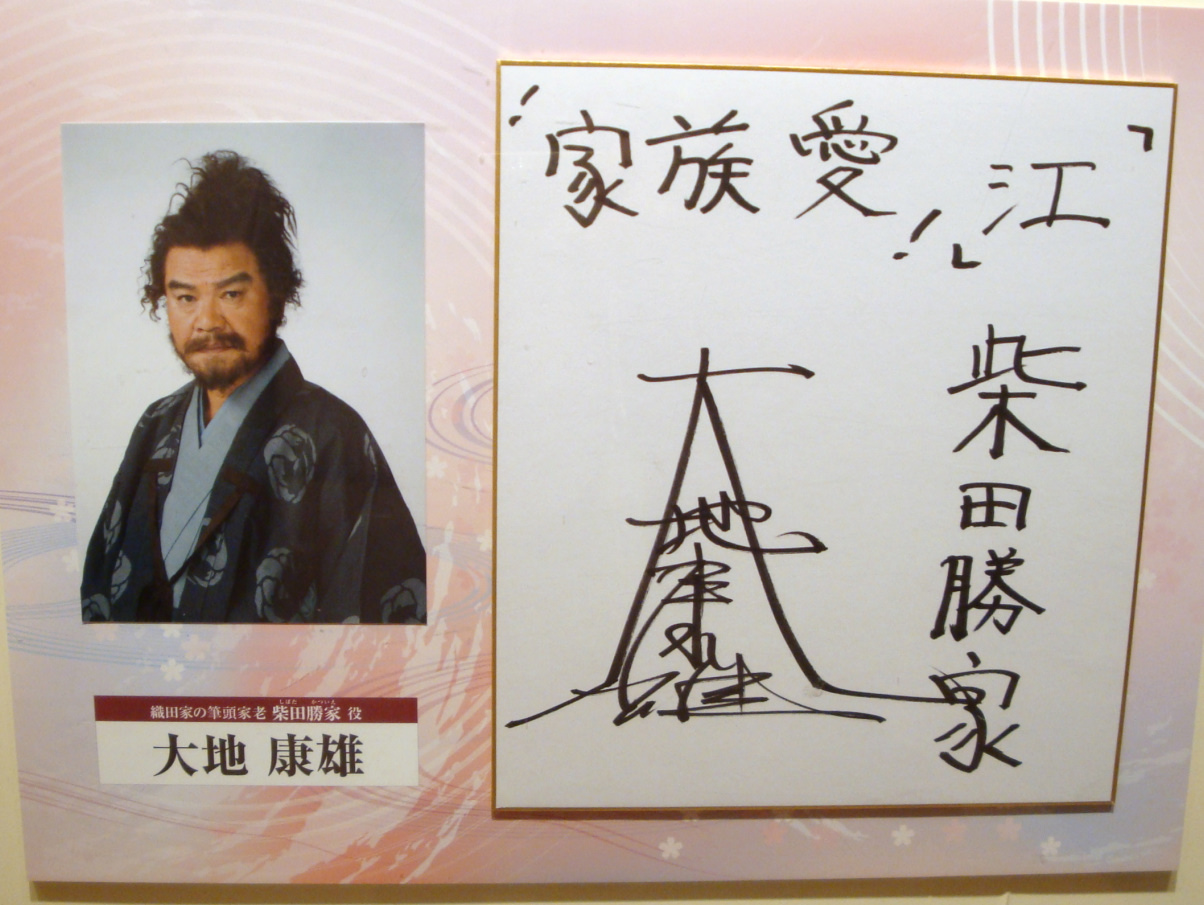 織田家の筆頭家老 柴田勝家 役
しばた かついえ
大地 康雄
「江」
家族愛!!
柴田勝家
大地康雄